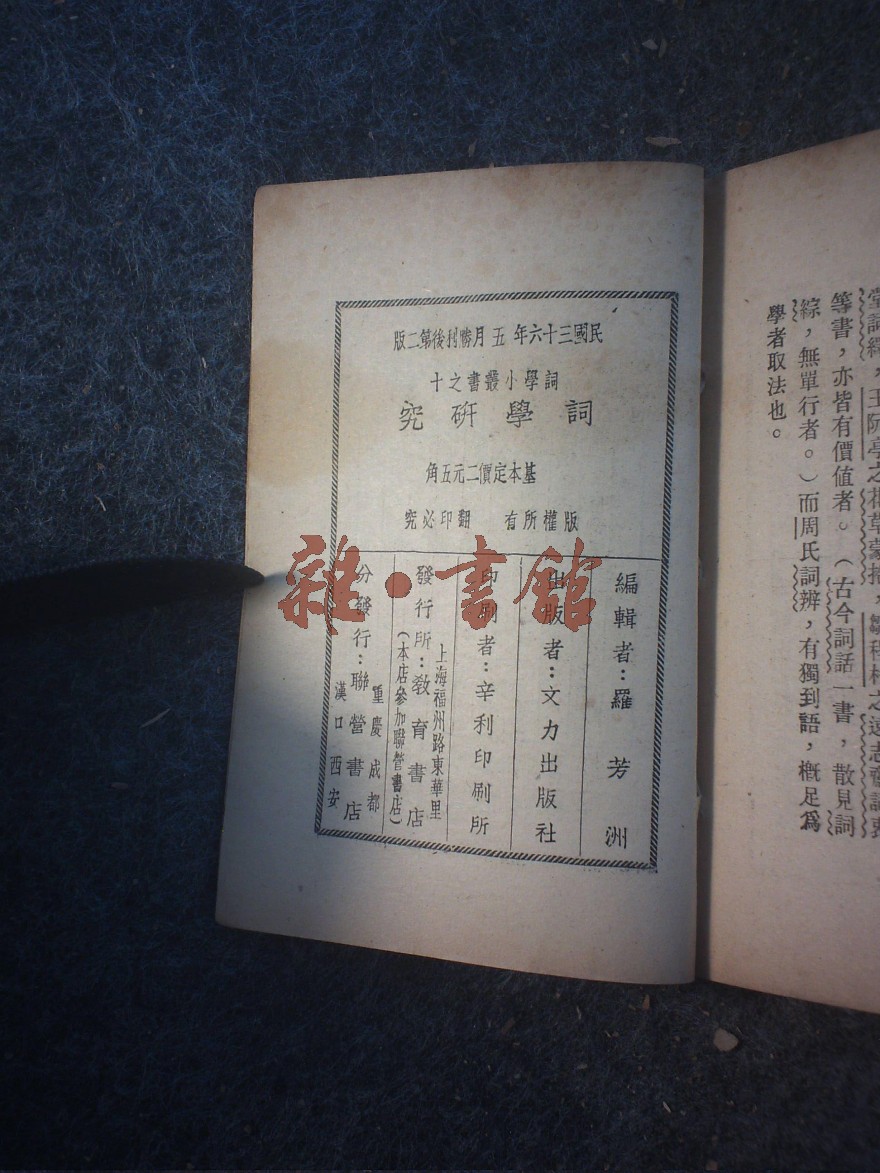 堂詞繹，王阮亭之花草蒙拾，鄒程村之遠志齋詞衷
等書，亦皆有價值者。（古今詞話一書，散見詞
綜，無單行者。）而周氏詞辨，有獨到語，槪足爲
學者取法也。
民國三十六年五月勝利後第二版
詞學小叢書之十
詞學硏究
基本定價二元五角
版權所有　翻印必究
編輯者：羅芳洲
出版者：文力出版社
印刷者：辛利印刷所
上海福州路東華里
發行所：教育書店
（本店參加聯營書店）
重慶成都
分發行：聯營書店
漢口西安
雜·書館